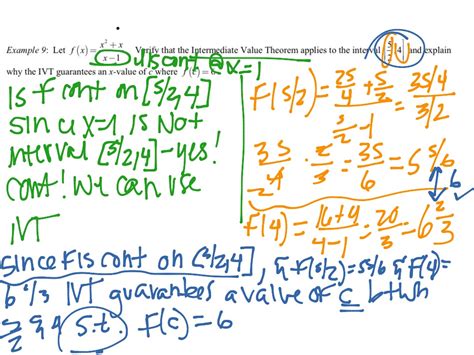 Example 9: Let f(x) = (x² + x)/(x − 1). Verify that the Intermediate Value Theorem applies to the interval [5/2, 4] and explain
why the IVT guarantees an x-value of c where f(c) = 6
discont @ x=1
Is f cont on [5/2, 4]
Since x=1 is Not
interval [5/2, 4] - yes!
cont! We can use
IVT
F(5/2) = (25/4 + 5/2)/(5/2 - 1) = (35/4)/(3/2)
35/4 · 2/3 = 35/6 = 5 5/6
6 ✓
F(4) = (16+4)/(4-1) = 20/3 = 6 2/3
Since F is cont on [5/2, 4], & F(5/2) = 5 5/6 & F(4) =
6 2/3 IVT guarantees a value of c btwn
5/2 & 4 s.t. F(c) = 6